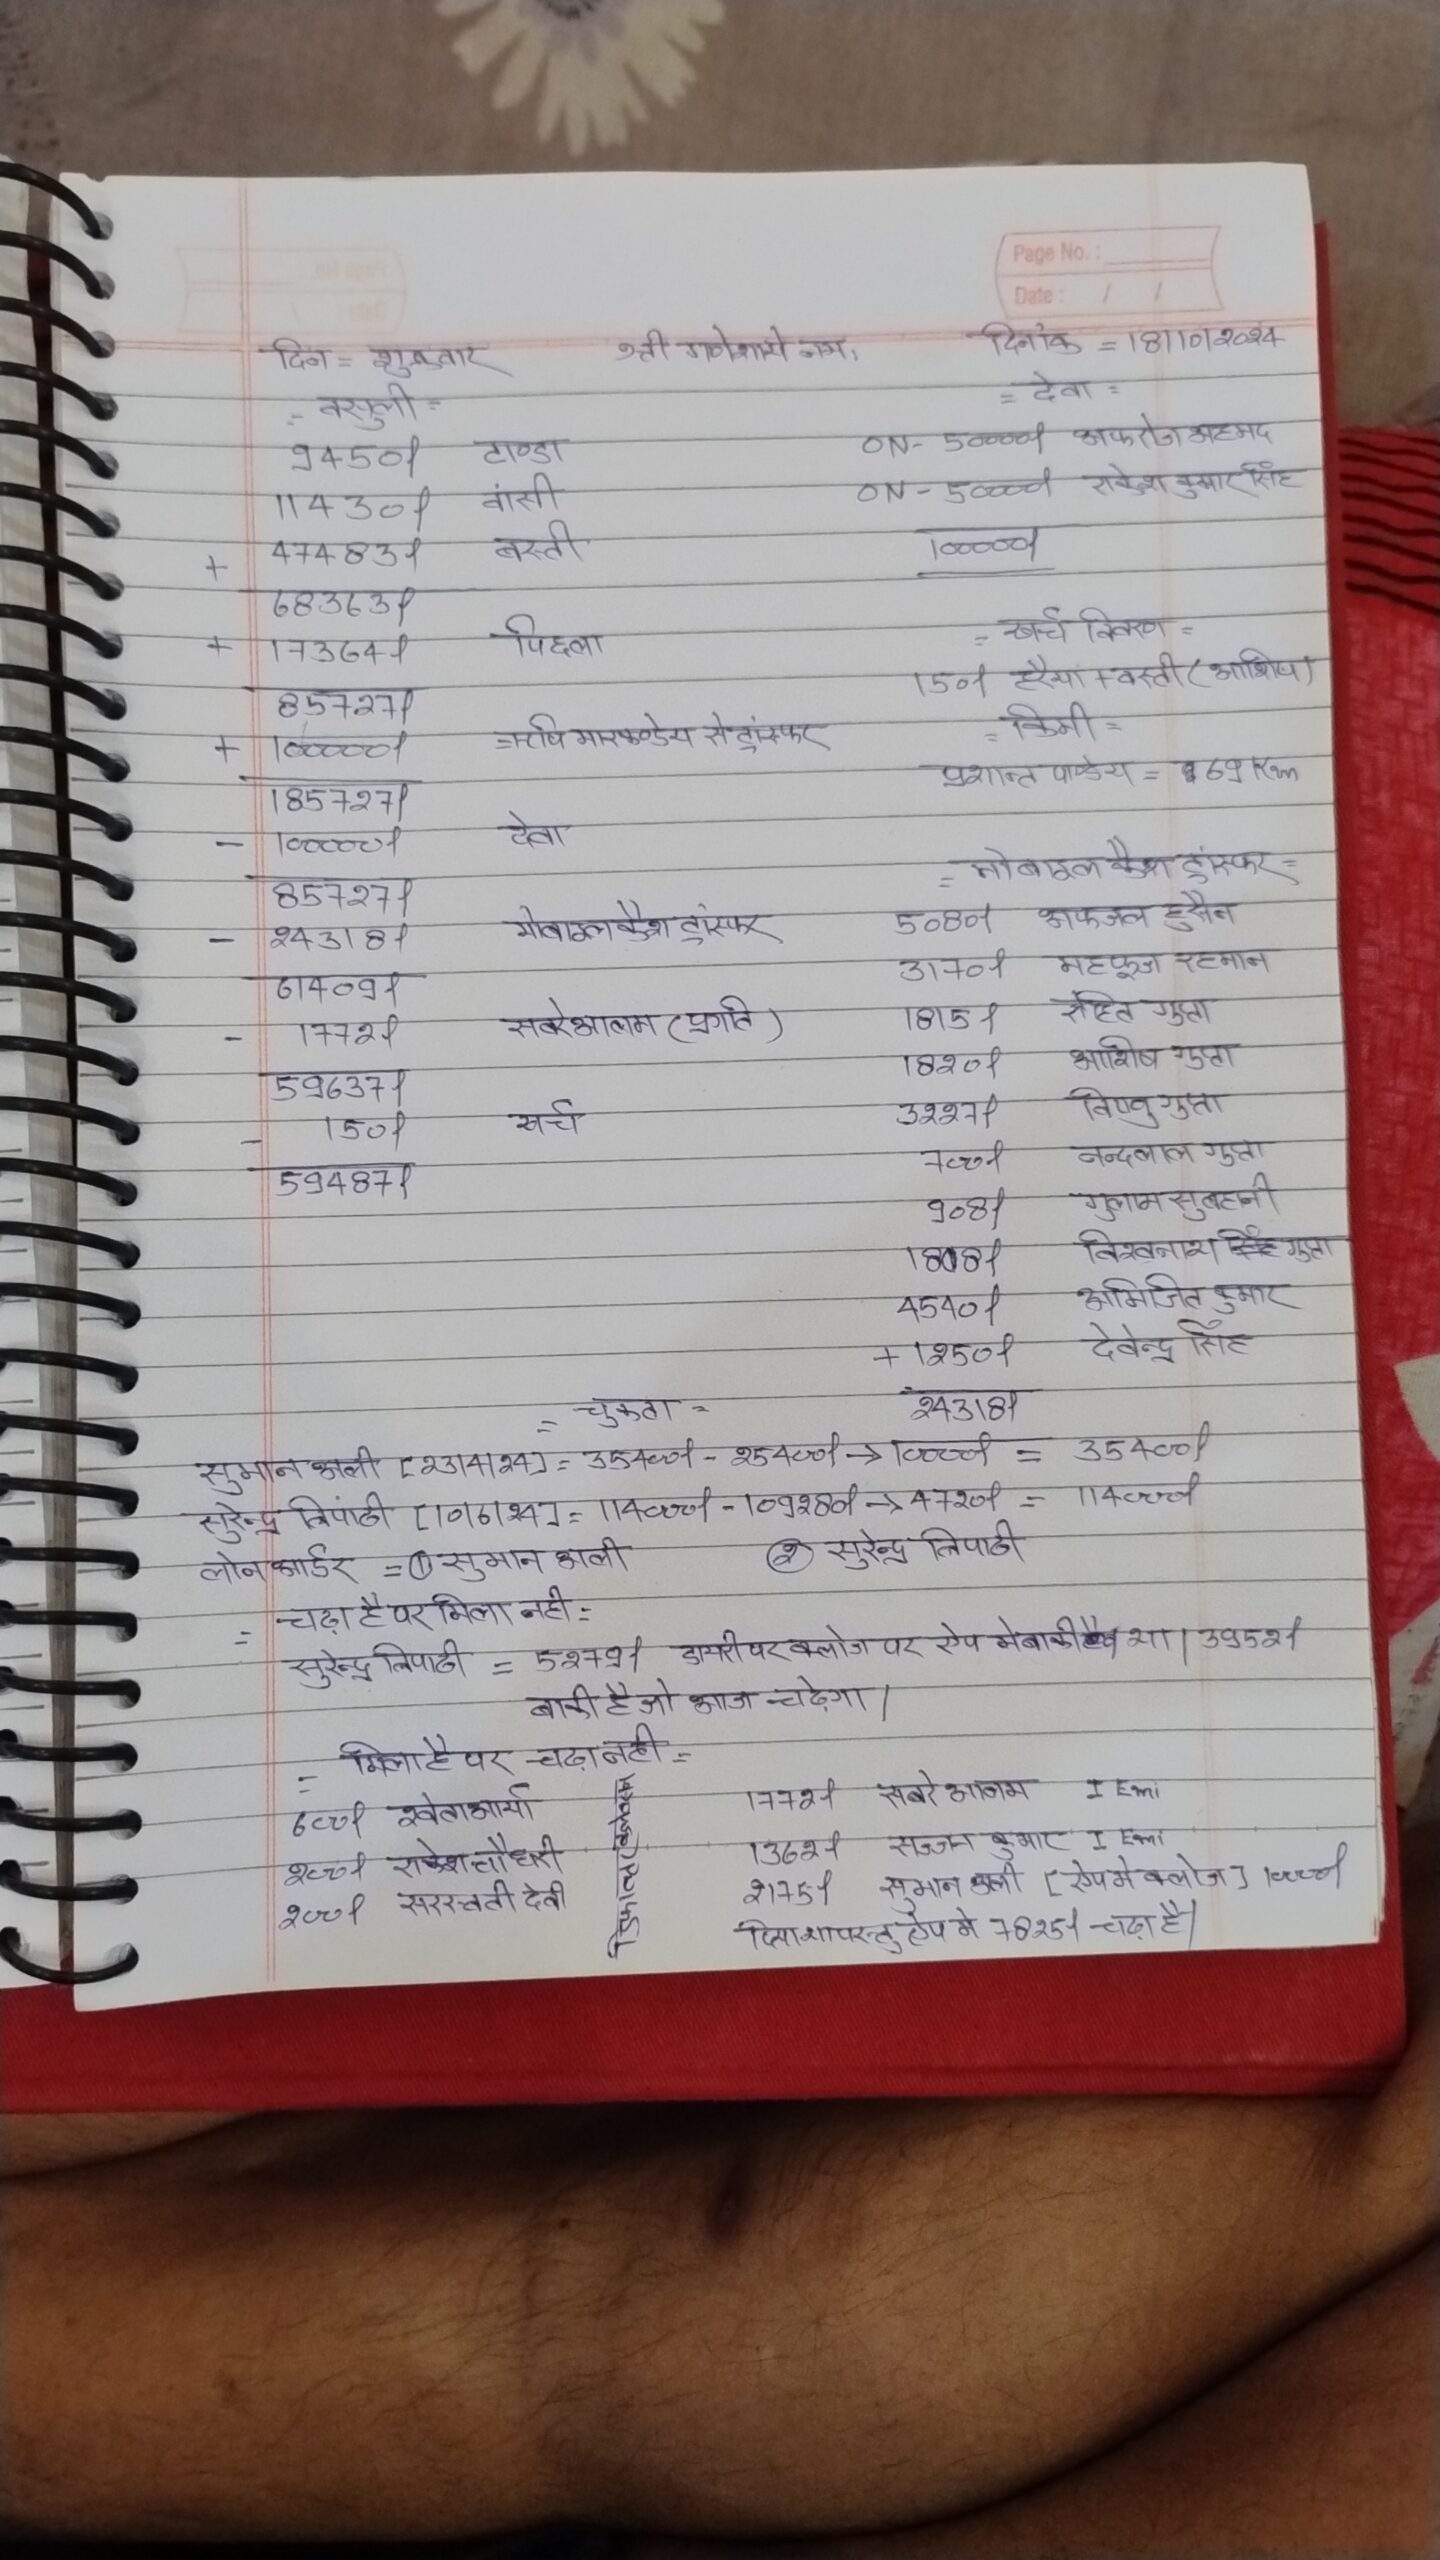 Page No. :
Date : / /
दिन = शुक्रवार श्री गणेशाये नमः दिनांक = 18/10/2024
= वसुली = = देवा =
9450/ टाण्डा ON - 50000/ अफरोज अहमद
11430/ बांसी ON - 50000/ राकेश कुमार सिंह
+ 47483/ बस्ती 100000/
68363/
+ 17364/ पिछला = खर्च विवरण =
85727/ 150/ हरैया + बस्ती (आशिष)
+ 100000/ ऋषि मारकण्डेय से ट्रांस्फर = किमी =
185727/ प्रशान्त पाण्डेय = 69 Km
- 100000/ देवा
85727/ = मोबाइल कैश ट्रांस्फर =
- 24318/ मोबाइल कैश ट्रांस्फर 5080/ अफजल हुसैन
61409/ 3170/ महफूज रहमान
- 1772/ सबरे आलम (प्रगति) 1815/ रोहित गुप्ता
59637/ 1820/ आशिष गुप्ता
- 150/ खर्च 3227/ विष्णु गुप्ता
59487/ 700/ नन्दलाल गुप्ता
908/ गुलाम सुबहानी
1808/ विश्वनाथ गुप्ता
4540/ अभिजित कुमार
+ 1250/ देवेन्द्र सिंह
= चुकता = 24318/
सुमान अली [23/4/24] = 35400/ - 25400/ → 10000/ = 35400/
सुरेन्द्र त्रिपाठी [10/6/24] = 114000/ - 109280/ → 4720/ = 114000/
लोन आर्डर = ① सुमान अली ② सुरेन्द्र त्रिपाठी
= चढ़ा है पर मिला नही =
सुरेन्द्र त्रिपाठी = 5279/ डायरी पर क्लोज पर ऐप मे बाकी था / 3952/
बाकी है जो आज चढ़ेगा /
= मिला है पर चढ़ा नही =
600/ श्वेता आर्या 1772/ सबरे आलम I Emi
200/ राकेश चौधरी 1362/ सज्जन कुमार I Emi
200/ सरस्वती देवी 2175/ सुमान अली [ऐप मे क्लोज] 10000/
दिया था परन्तु ऐप मे 7825/ चढ़ा है/